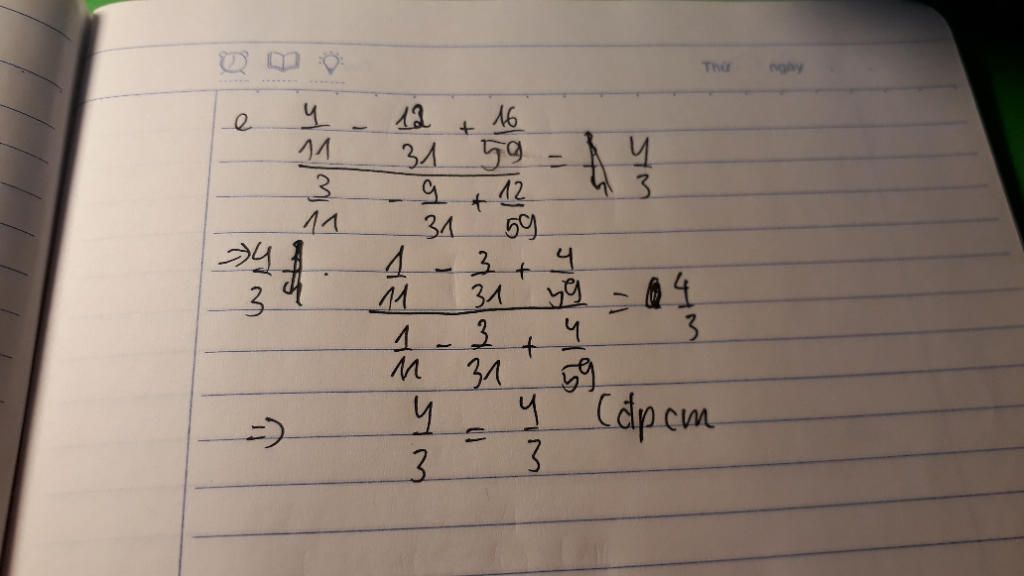 Thứ ngày
e 4/11 - 12/31 + 16/59 / 3/11 - 9/31 + 12/59 = 4/3
=> 4/3 . 1/11 - 3/31 + 4/59 / 1/11 - 3/31 + 4/59 = 4/3
=> 4/3 = 4/3 (đpcm